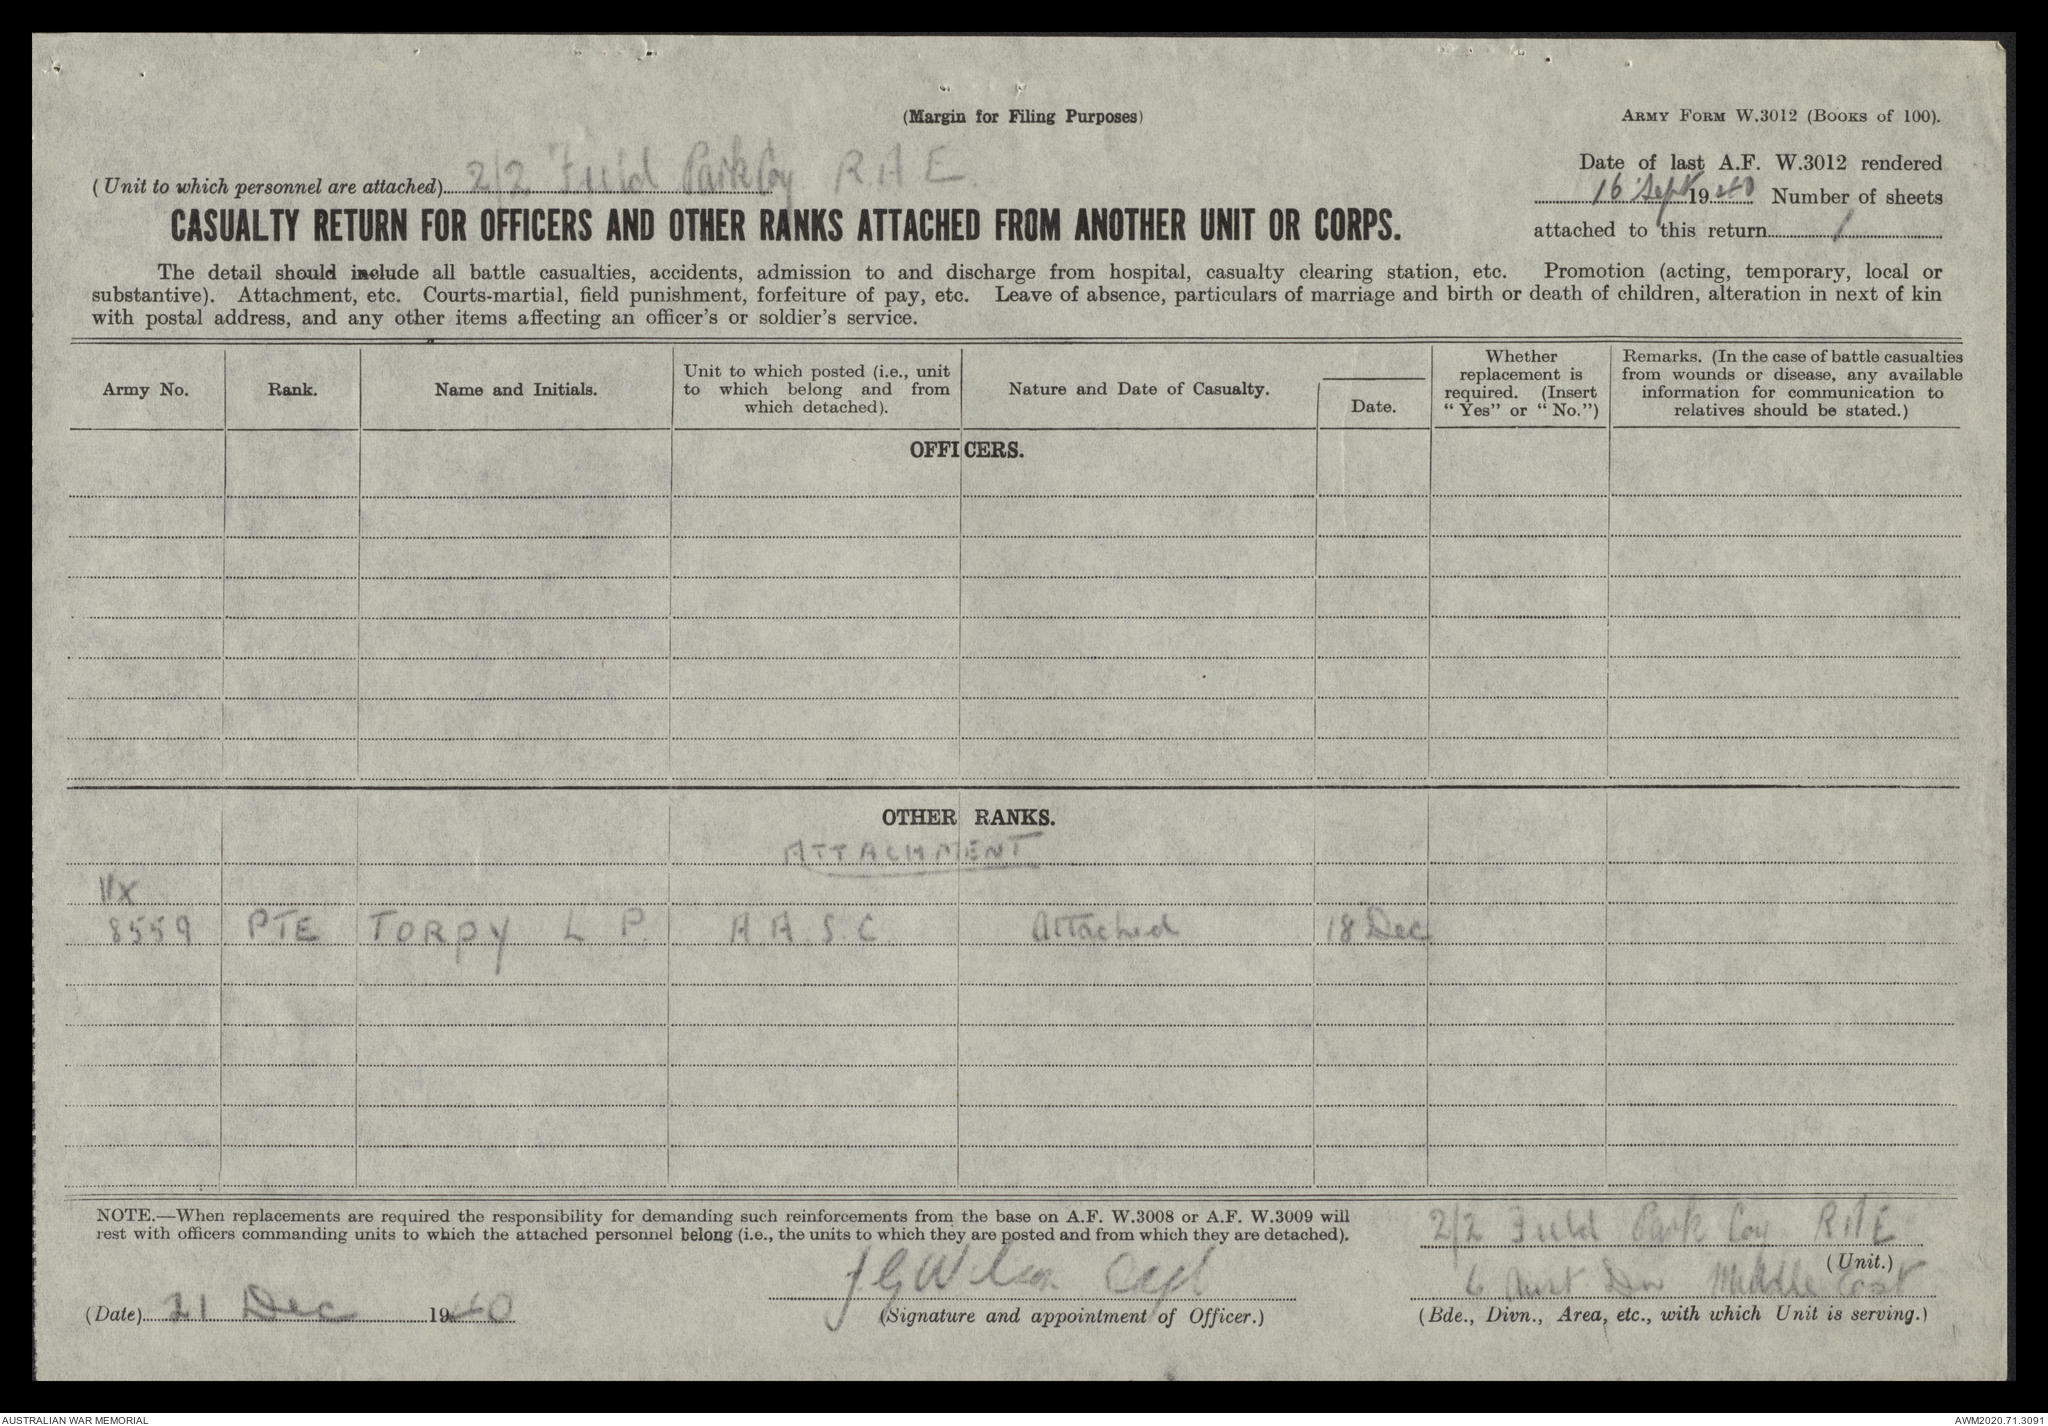 (Margin for Filing Purposes)
ARMY FORM W.3012 (BOOKS of 100).
(Unit to which personnel are attached) 2/2 Field Park Coy R A E
Date of last A.F. W.3012 rendered
16 Sept 1940 Number of sheets
attached to this return 1
CASUALTY RETURN FOR OFFICERS AND OTHER RANKS ATTACHED FROM ANOTHER UNIT OR CORPS.
The detail should include all battle casualties, accidents, admission to and discharge from hospital, casualty clearing station, etc. Promotion (acting, temporary, local or
substantive). Attachment, etc. Courts-martial, field punishment, forfeiture of pay, etc. Leave of absence, particulars of marriage and birth or death of children, alteration in next of kin
with postal address, and any other items affecting an officer's or soldier's service.
Army No. Rank. Name and Initials. Unit to which posted (i.e., unit to which belong and from which detached). Nature and Date of Casualty. Date. Whether replacement is required. (Insert "Yes" or "No.") Remarks. (In the case of battle casualties from wounds or disease, any available information for communication to relatives should be stated.)
OFFICERS.
OTHER RANKS.
ATTACHMENT
VX
8559 PTE TORPY L P. A.A.S.C. Attached 18 Dec
NOTE.—When replacements are required the responsibility for demanding such reinforcements from the base on A.F. W.3008 or A.F. W.3009 will
rest with officers commanding units to which the attached personnel belong (i.e., the units to which they are posted and from which they are detached).
2/2 Field Park Coy RAE
(Unit.)
J G Wilson Capt
6 Aust Div Middle East
(Date) 21 Dec 1940
(Signature and appointment of Officer.)
(Bde., Divn., Area, etc., with which Unit is serving.)
AUSTRALIAN WAR MEMORIAL
AWM2020.71.3091